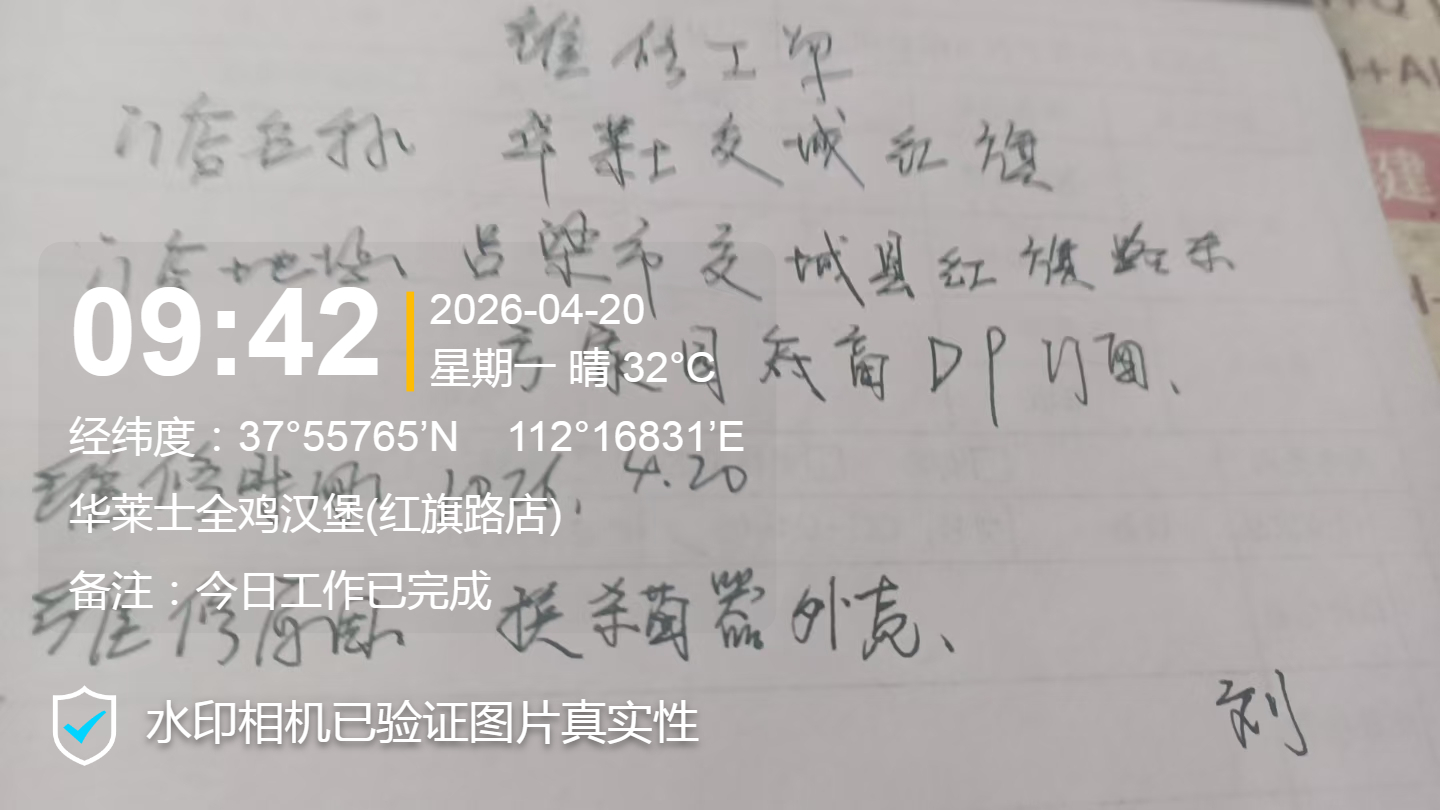 维修工单
门店名称 华莱士交城红旗
门店地址 吕梁市交城县红旗路东
DP门面、
维修时间 2026.4.20
维修原因 换杀菌器外壳、
刘
09:42
2026-04-20
星期一 晴 32°C
经纬度：37°55765’N 112°16831’E
华莱士全鸡汉堡(红旗路店)
备注：今日工作已完成
水印相机已验证图片真实性
建